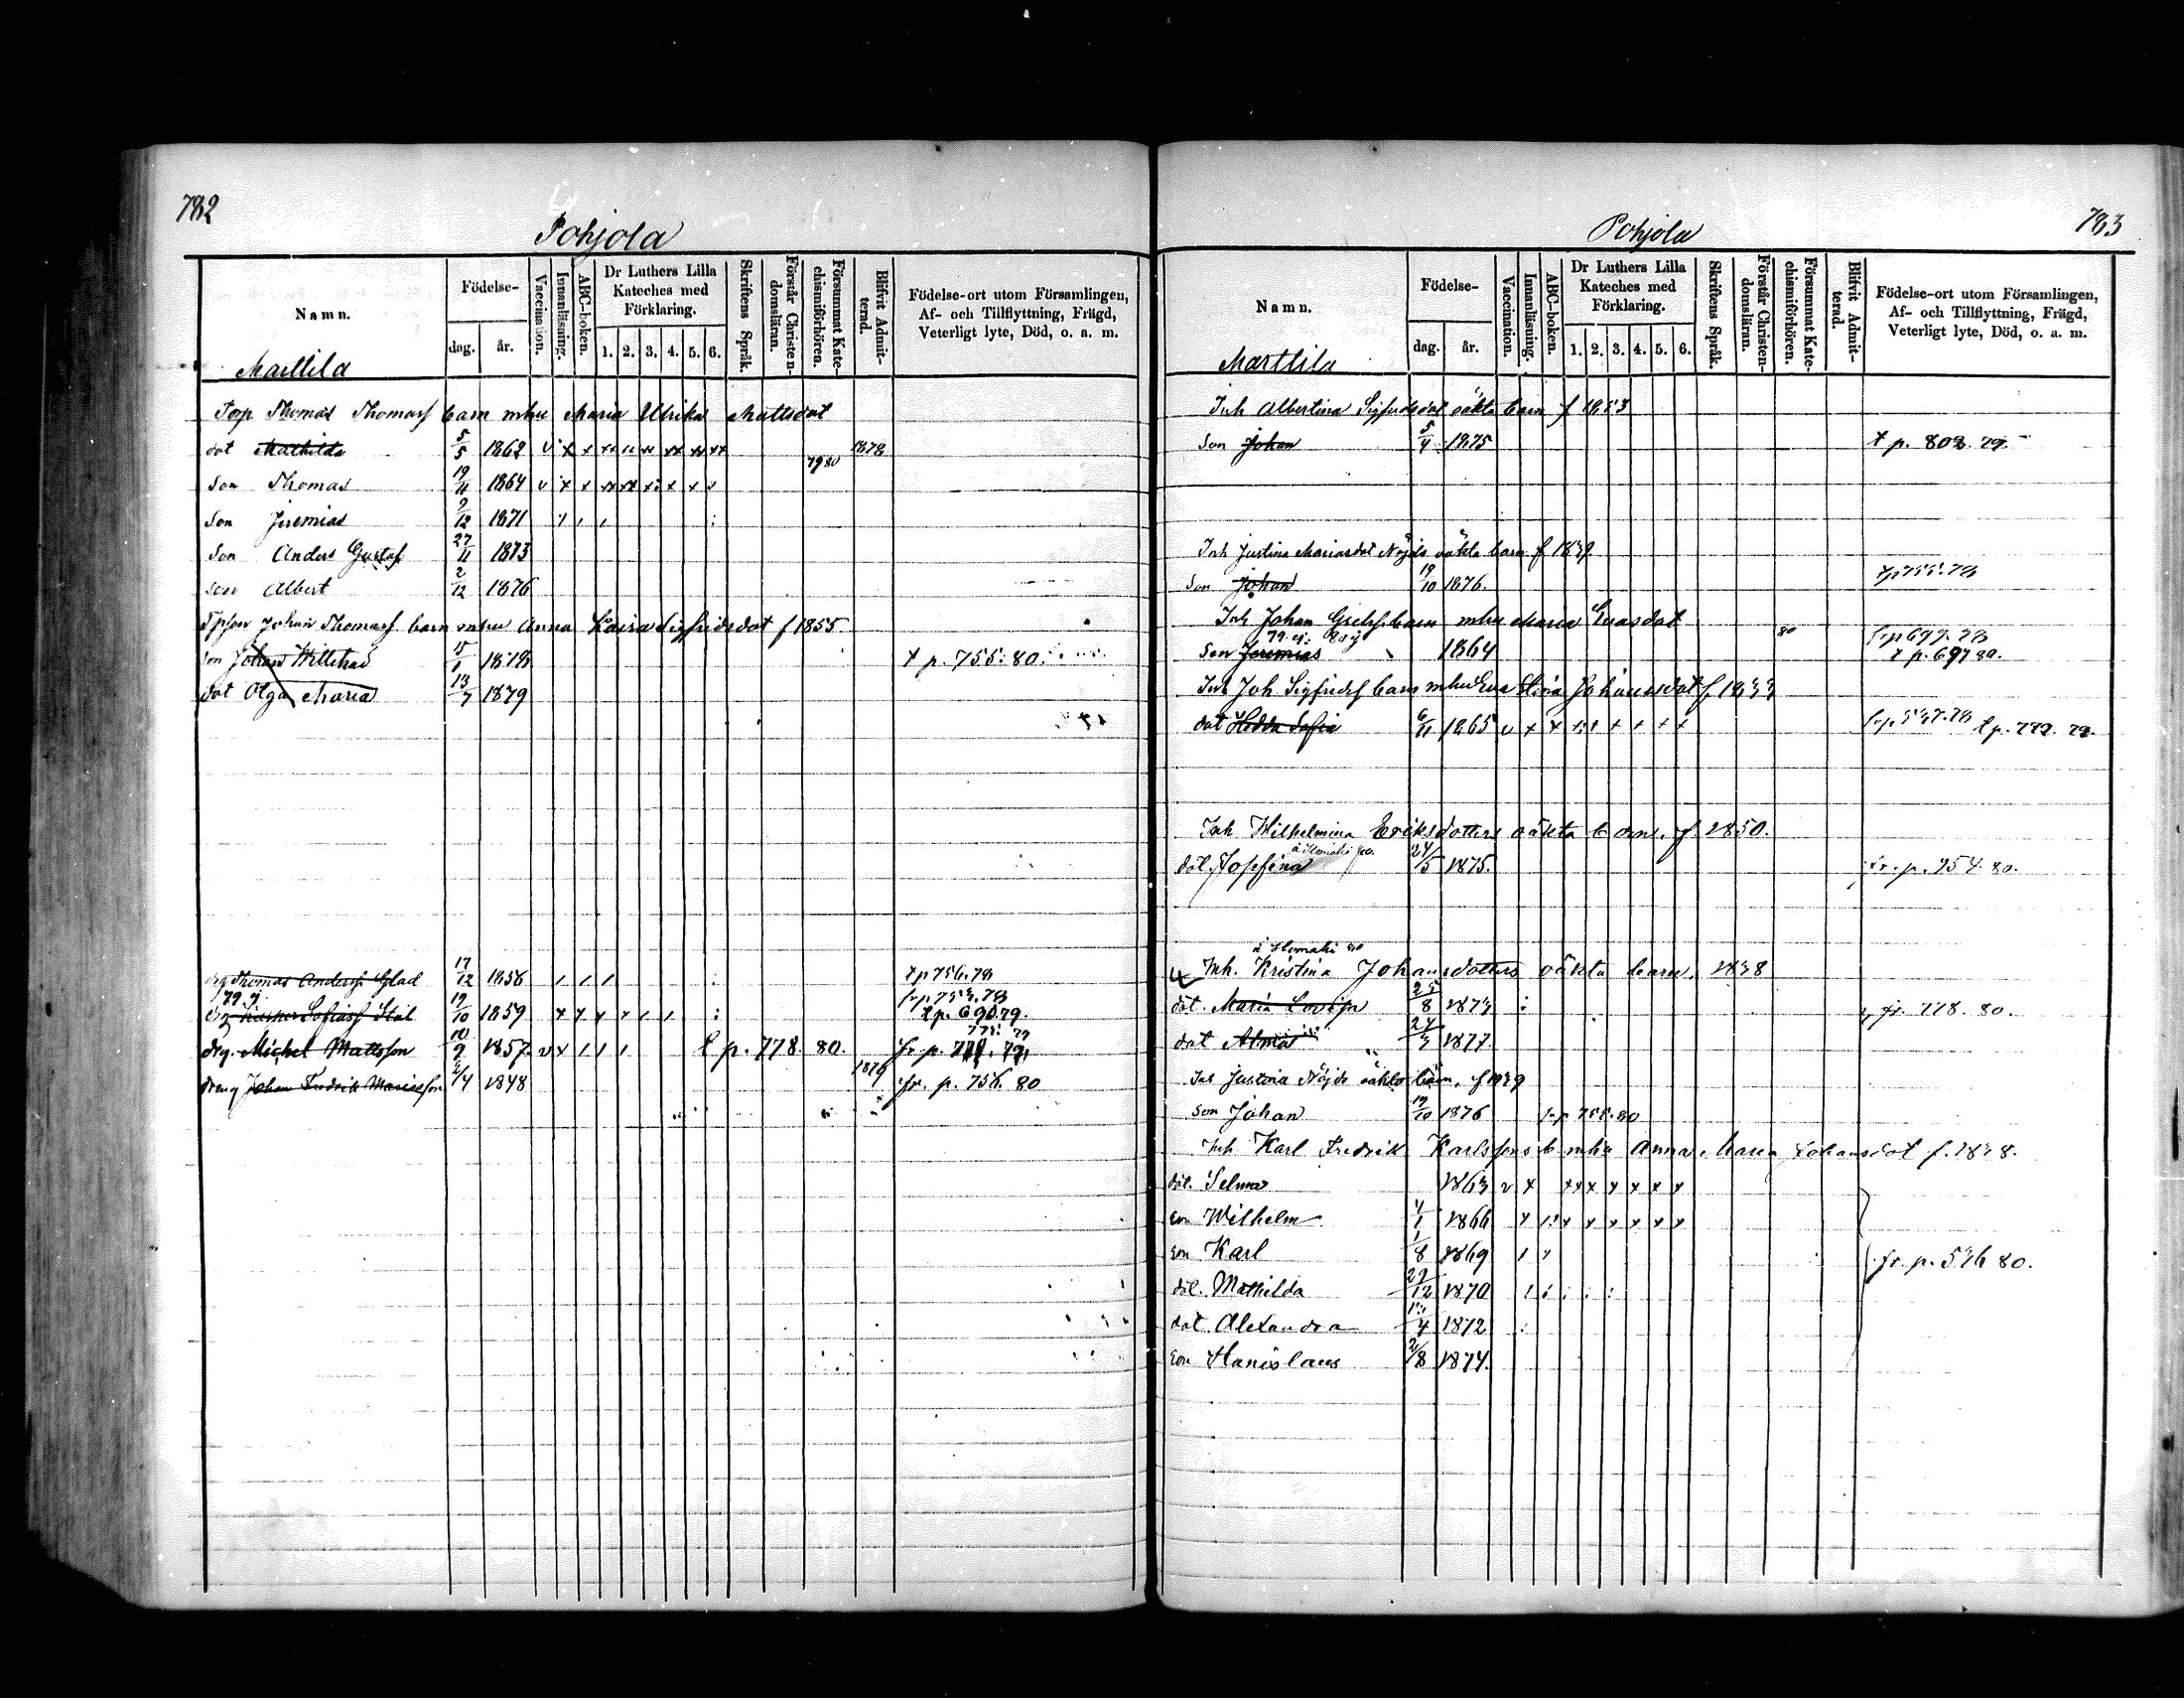 782
Pohjola
Namn.
Födelse-
dag.
år.
Vaccination.
Innanläsning.
ABC-boken.
Dr Luthers Lilla
Kateches med
Förklaring.
1. 2. 3. 4. 5. 6.
Skriftens Språk.
Förstår Christen-
domsläran.
Försummat Kate-
chismiförhören.
Blifvit Admit-
terad.
Födelse-ort utom Församlingen,
Af- och Tillflyttning, Frägd,
Veterligt lyte, Död, o. a. m.
Marttila
Thomas Thomasf barn mhu Maria Ulrika Mattsdot
dot Mathilda 5/5 1862 v x x xx xx xx xx xx 1878
79 80
Son Thomas 19/11 1864 v x x xx xx x x x v
Son Jeremias 9/12 1871
Son Anders Gustaf 27/11 1873
son Albert 2/12 1876
Johan Thomasf barn mhu Anna Kaisa Sigfridsdot f 1855
son Johan Willehad 15/1 1878 t p. 755. 80.
dot Olga Maria 13/7 1879
drg Thomas Andersf Glad 17/12 1856 t p 756. 78
79. j.
Sofiasf Stål 19/10 1859 x x x x fr p 753. 78
t p. 690 79.
drg. Michel Mattsson 10/9 1857 v x t p. 778. 80. fr. p. 79.
dreng Johan Fredrik Mariasson 2/4 1848 fr. p. 756. 80
783
Pohjola
Namn.
Födelse-
dag.
år.
Vaccination.
Innanläsning.
ABC-boken.
Dr Luthers Lilla
Kateches med
Förklaring.
1. 2. 3. 4. 5. 6.
Skriftens Språk.
Förstår Christen-
domsläran.
Försummat Kate-
chismiförhören.
Blifvit Admit-
terad.
Födelse-ort utom Församlingen,
Af- och Tillflyttning, Frägd,
Veterligt lyte, Död, o. a. m.
Marttila
Inh Albertina Sigfridsdot oäkta barn f 1853
Son Johan 5/4 1875 t p. 808. 79.
Inh Justina Mariasdot Nöjds oäkta barn f 1839
Son Johan 19/10 1876. 755. 78
Inh Johan barn mhu Maria Evasdot
79. ej. 80 ej 80 fr p 697. 78
Son Jeremias 1864 t p. 697 80.
Inh Joh Sigfridsf barn mhu Eva Stina Johansdot f 1833
dot Hedda Sofia 6/11 1865 v x x x x x x x fr p 537. 78 t p. 779. 79.
Inh Wilhelmina Eriksdotters oäkta barn. f. 1850.
döt. Josefina 24/5 1875. fr. p. 754. 80.
Inh. Kristina Johansdotters oäkta barn. 1838
döt. Maria Lovisa 25/8 1873 fr. 778. 80.
dot Alma 24/3 1877.
Inh Justina Nöjds oäkta barn, f 1839
Son Johan 19/10 1876 fr p 755. 80
Inh Karl Fredrik Karlssons b mhu Anna Maria Johansdot f. 1838.
döt. Selma 1863 v x x x x x x x x
son Wilhelm 4/1 1866 x x x x x x x
son Karl 1/8 1869 fr. p. 536 80.
döt. Mathilda 29/12 1870
dot Alexandra 13/4 1872
son Stanislaus 2/8 1874.